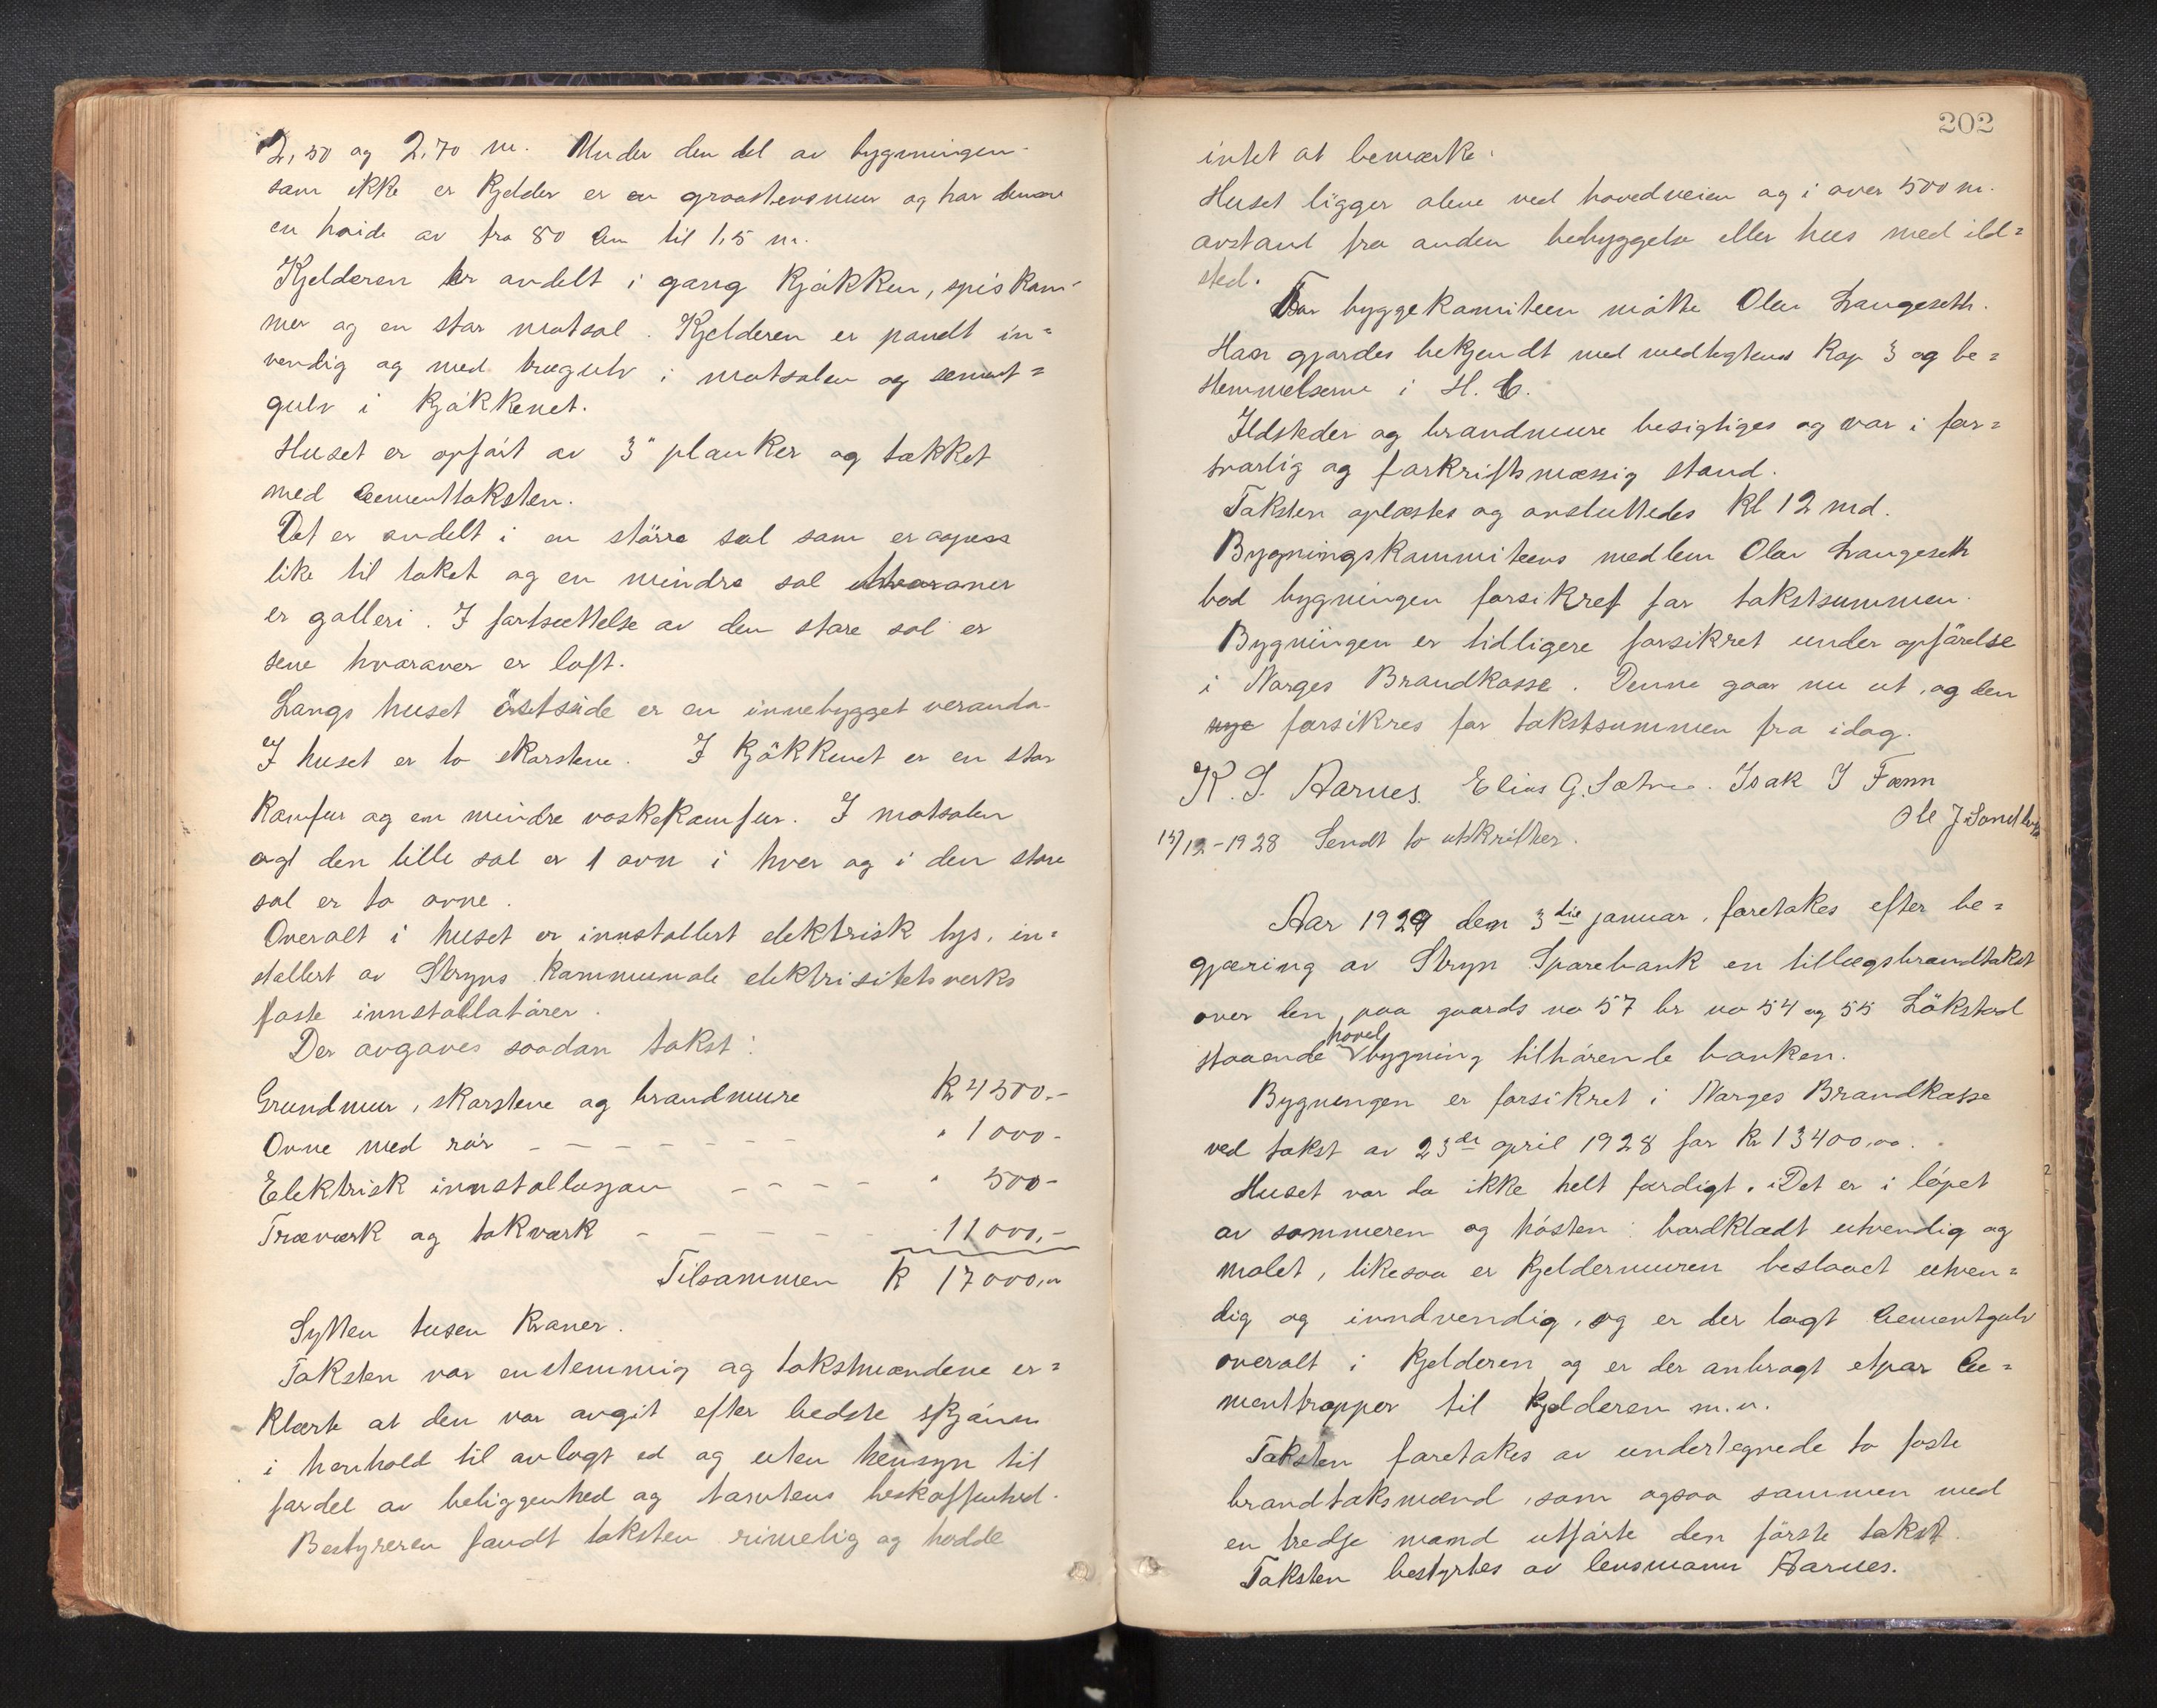 2,50 og 2,70 m. Under den del av bygningen
som ikke er kjelder er en graastensmur og har denne
en høide av fra 80 cm til 1,5 m.
Kjelderen er avdelt i gang kjøkken, spiskam-
mer og en stor matsal. Kjelderen er pandt in=
vendig og med trægulv i matsalen og sement=
gulv i kjøkkenet.
Huset er opført av 3" planker og tækket
med Cementtaksten.
Det er avdelt i en større sal som er aapen
like til taket og en mindre sal hvorover
er galleri. I fortsættelse av den store sal er
sene hvorover er loft.
Langs huset östside er en innebygget veranda.
I huset er to skorstene. I kjøkkenet er en stor
Komfur og en mindre vaskekomfur. I matsalen
og den lille sal er 1 ovn i hver og i den store
sal er to ovne.
Overalt i huset er innstallert elektrisk lys, in=
stallert av Stryns kommunale elektrisitetsverks
faste innstallatører.
Der avgaves saadan takst:
Grundmur, skorstene og brandmure Kr 4500.-
Ovne med rør - - - - - - - " 1000.-
Elektrisk innstallasjon - - - - " 500-
Træværk og takværk - - - - - 11000,-
Tilsammen Kr 17000,00
Sytten tusen kroner.
Taksten var enstemmig og takstmændene er=
klærte at den var avgit efter bedste skjønn
i henhold til avlagt ed og uten hensyn til
fordel av beliggenhed og tomtens beskaffenhed.
Bestyreren fandt taksten rimelig og hadde
202
intet at bemærke.
Huset ligger alene ved hovedveien og i over 500 m.
avstand fra anden bebyggelse eller hus med ild=
sted.
For byggekomiteen møtte Olav Langeseth.
Han gjordes bekjendt med vedtegtens kap 3 og be=
stemmelserne i H. C.
Ildsteder og brandmure besigtiges og var i for=
svarlig og forskriftsmæssig stand.
Taksten oplæstes og avsluttedes kl 12 md.
Bygningskommiteens medlem Olav Langeseth
bad bygningen forsikret for takstsummen.
Bygningen er tidligere forsikret under opförelse
i Norges Brandkasse. Denne gaar nu ut, og den
nye forsikres for takstsummen fra idag.
K. S. Aarnes. Elias G. Sætre. Isak I Fænn
Ole J Sandbu
15/12-1928 Sendt to utskrifter.
Aar 1929 den 3die januar, foretakes efter be=
gjæring av Stryn Sparebank en tillægsbrandtakst
over den paa gaards no 57 br no 54 og 55 Lökstad
hoved
staaende bygning tilhørende banken.
Bygningen er forsikret i Norges Brandkasse
ved takst av 23de april 1928 for Kr 13400,00.
Huset var da ikke helt færdigt. Det er i løpet
av sommeren og høsten bordklædt utvendig og
malet, likesaa er kjeldermuren beslaaet utven=
dig og inndvendig, og er der lagt Cementgulv
overalt i kjelderen og er der anbragt etpar Ce=
menttrapper til kjelderen m.v.
Taksten foretakes av undertegnede to faste
brandtaksmænd, som ogsaa sammen med
en tredje mand utførte den første takst.
Taksten bestyrtes av lensmann Aarnes.